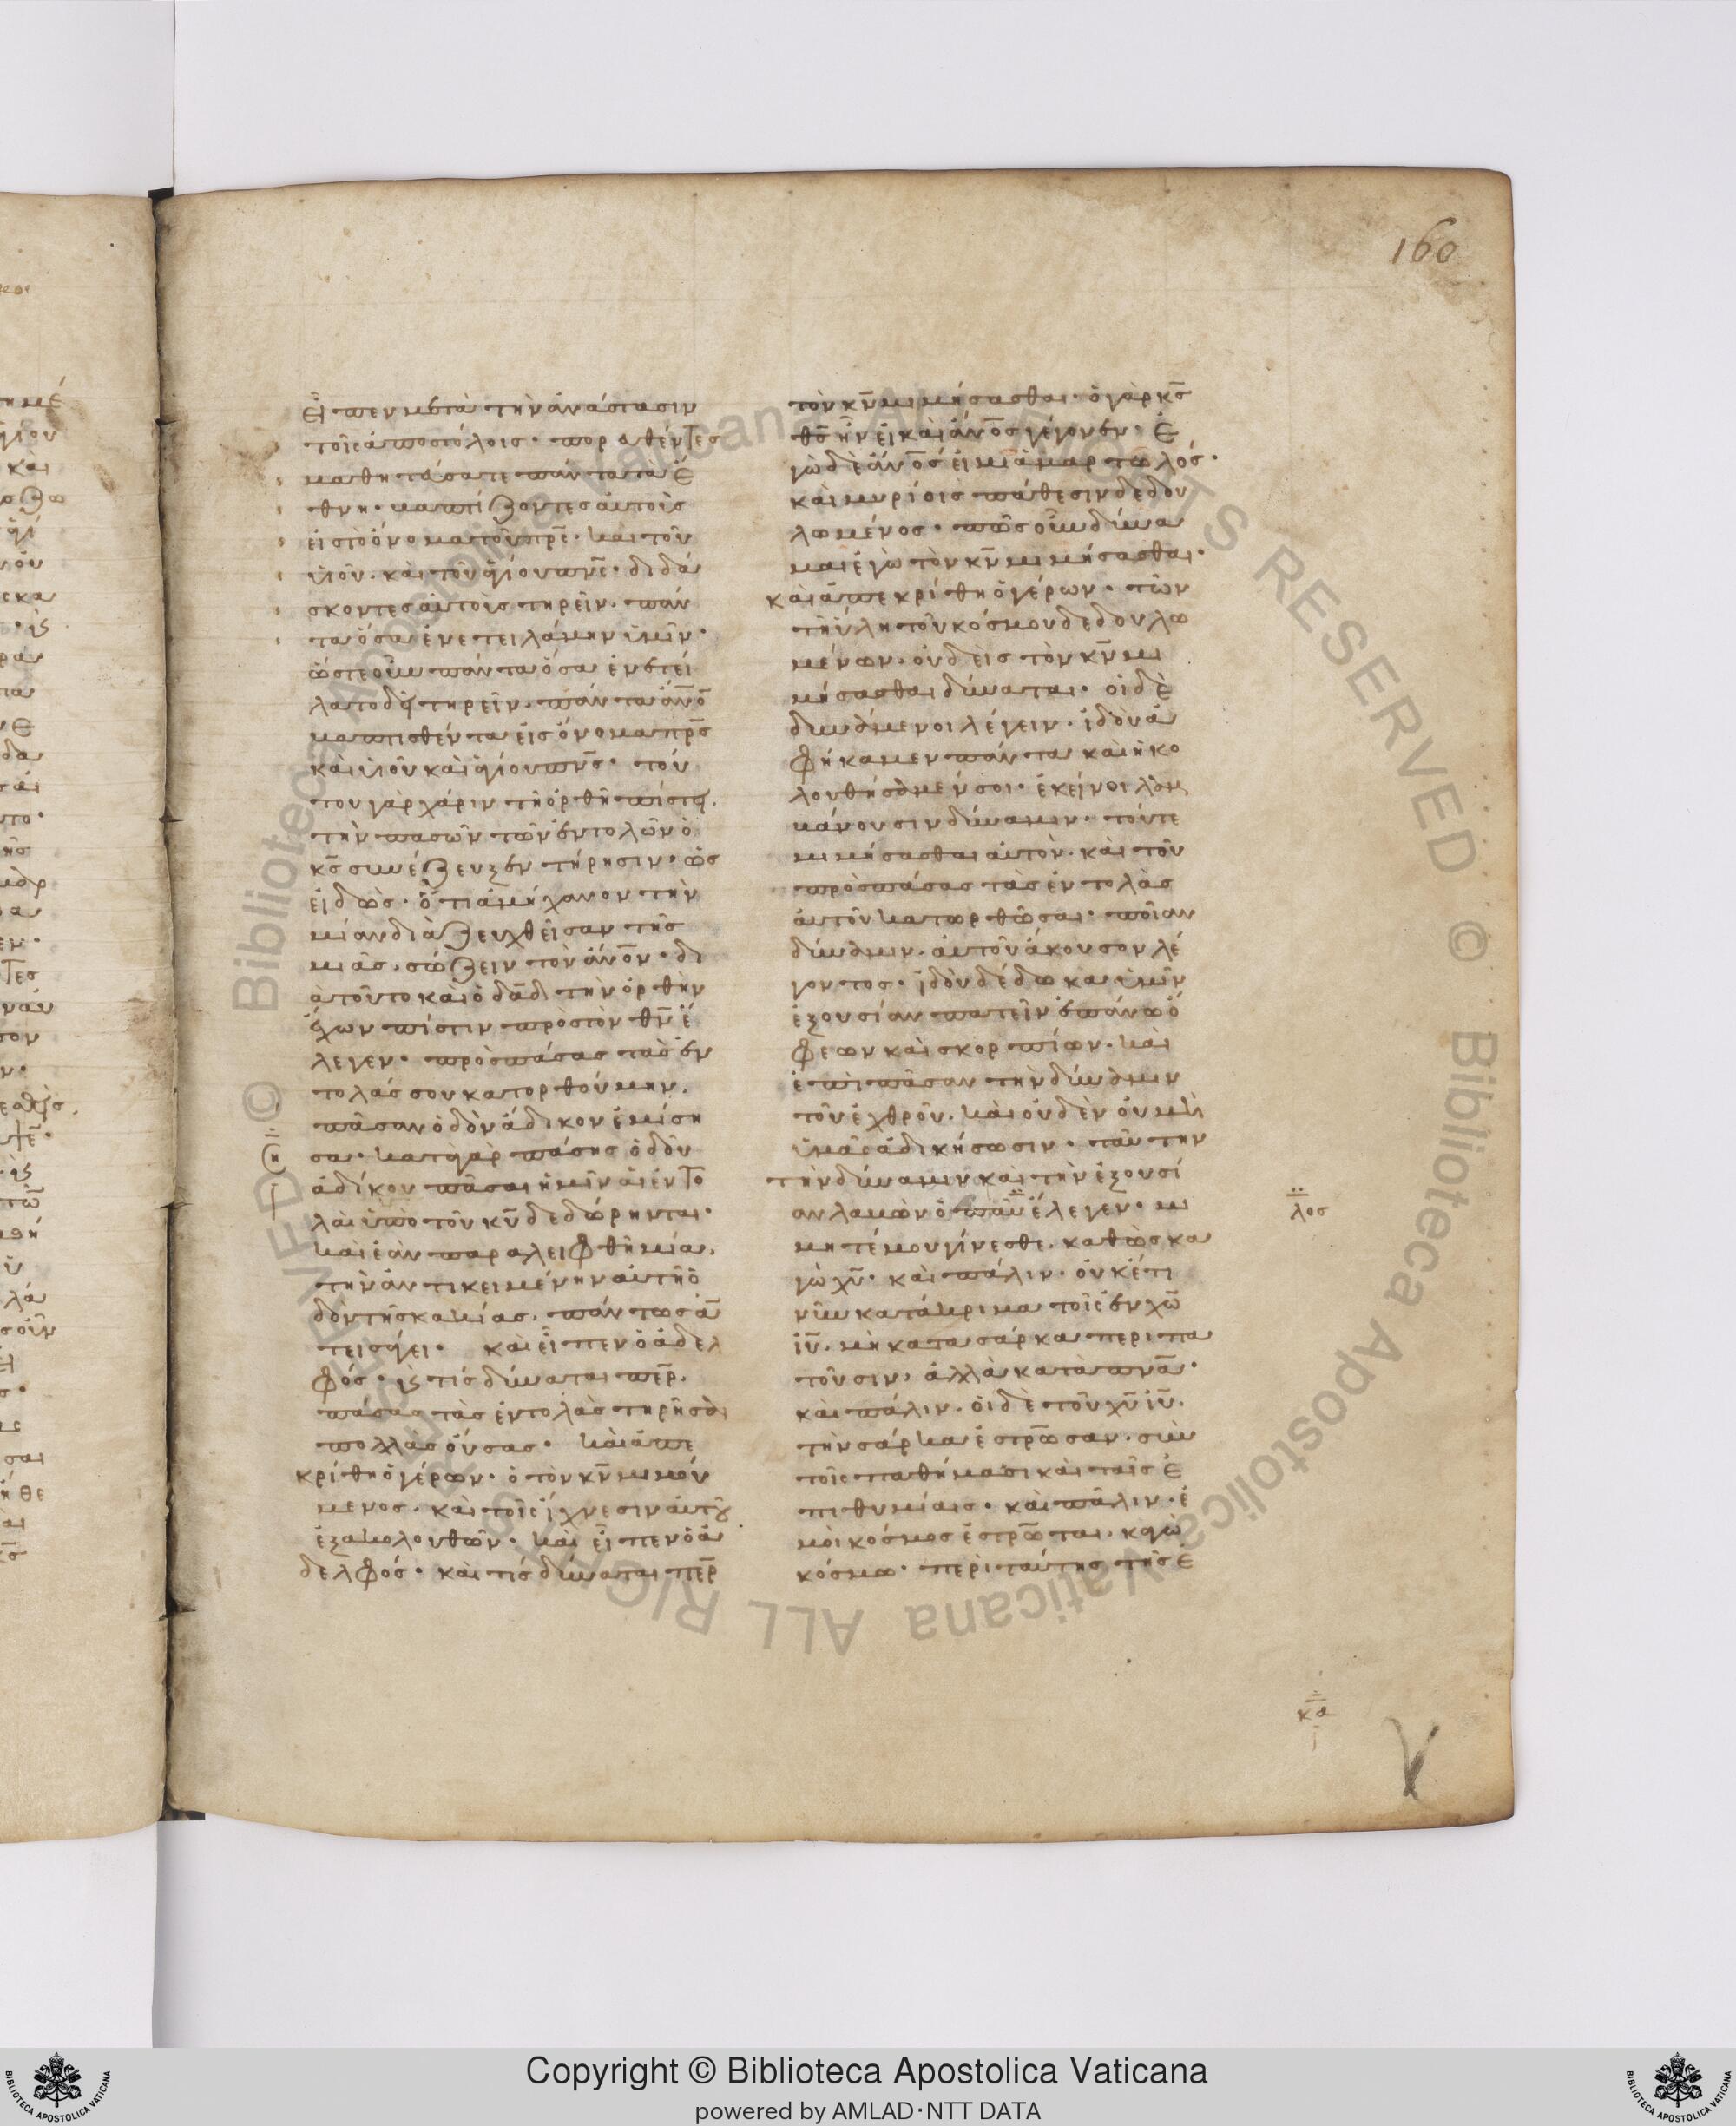 160
εἶπεν μετὰ τὴν ἀνάστασιν
τοῖς ἀποστόλοις· πορευθέντες
μαθητεύσατε πάντα τὰ ἔ
θνη· βαπτίζοντες αὐτοὺς
εἰς τὸ ὄνομα τοῦ πρς· καὶ τοῦ
υἱοῦ· καὶ τοῦ ἁγίου πνς· διδά
σκοντες αὐτοὺς τηρεῖν· πάν
τα ὅσα ἐνετειλάμην ὑμῖν·
ὥστε οὖν πάντα ὅσα ἐνετεί
λατο δεῖ τηρεῖν· πάντα ἄνον
βαπτισθέντα εἰς ὄνομα πρς
καὶ υἱοῦ καὶ ἁγίου πνς· τού
του γὰρ χάριν τῇ ὀρθῇ πίστει·
τὴν πασῶν τῶν ἐντολῶν ὁ
κς συνέζευξεν τήρησιν· ὡς
εἰδὼς· ὅτι ἀμήχανον τὴν
μίαν διαζευχθεῖσαν τῆς
μιᾶς· σώζειν τὸν ἄνον· δι
ὰ τοῦτο καὶ ὁ δαδ τὴν ὀρθὴν
ἔχων πίστιν πρὸς τὸν θν ἔ
λεγεν· πρὸς πάσας τὰς ἐν
τολάς σου κατορθούμην·
πᾶσαν ὁδὸν ἄδικον ἐμίση
σα· κατὰ γὰρ πάσης ὁδοῦ
ἀδίκου πᾶσαι ἡμῖν αἱ ἐντο
λαὶ ὑπὸ τοῦ κυ δεδώρηνται·
καὶ ἐὰν παραλειφθῇ μία·
τὴν ἀντικειμένην αὐτῇ ὁ
δὸν τῆς κακίας· πάντως ἀν
τεισάγει· καὶ εἶπεν ὁ ἀδελ
φός· καὶ τίς δύναται περ·
πάσας τὰς ἐντολὰς τηρῆσαι
πολλὰς οὔσας· καὶ ἀπε
κρίθη ὁ γέρων· ὁ τὸν κν μιμού
μενος· καὶ τοῖς ἴχνεσιν αὐτοῦ
ἐξακολουθῶν· καὶ εἶπεν ὁ ἀ
δελφός· καὶ τίς δύναται περ
τὸν κν μιμήσασθαι· ὁ γὰρ κς
θς ἦν εἰ καὶ ἄνος γέγονεν· ἐ
γὼ δὲ ἄνος εἰμὶ ἁμαρτωλός·
καὶ μυρίοις πάθεσιν δεδου
λωμένος· πῶς οὖν δύνα
μαι ἐγὼ τὸν κν μιμήσασθαι·
καὶ ἀπεκρίθη ὁ γέρων· τῶν
τῇ ὕλῃ τοῦ κόσμου δεδουλω
μένων· οὐδεὶς τὸν κν μι
μήσασθαι δύναται· οἱ δὲ
δυνάμενοι λέγειν· ἰδοὺ ἀ
φήκαμεν πάντα καὶ ἠκο
λουθήσαμέν σοι· ἐκεῖνοι λαμ
βάνουσιν δύναμιν· τοῦ τε
μιμήσασθαι αὐτόν· καὶ τοῦ
πρὸς πάσας τὰς ἐντολὰς
αὐτοῦ κατορθῶσαι· ποίαν
δύναμιν· αὐτοῦ ἄκουσον λέ
γοντος· ἰδοὺ δέδωκα ὑμῖν
ἐξουσίαν πατεῖν ἐπάνω ὄ
φεων καὶ σκορπίων· καὶ
ἐπὶ πᾶσαν τὴν δύναμιν
τοῦ ἐχθροῦ· καὶ οὐδὲν οὐ μὴ
ὑμᾶς ἀδικήσωσιν· ταύτην
τὴν δύναμιν καὶ τὴν ἐξουσί
αν λαβὼν ὁ παῦ ἔλεγεν· μι
μηταί μου γίνεσθε· καθὼς κα
γὼ χυ· καὶ πάλιν· οὐκέτι
νῦν κατάκριμα τοῖς ἐν χω
ιυ· μὴ κατὰ σάρκα περιπα
τοῦσιν· ἀλλὰ κατὰ πνα·
καὶ πάλιν· οἱ δὲ τοῦ χυ ιυ·
τὴν σάρκα ἐστρωσαν· σὺν
τοῖς παθήμασι καὶ ταῖς ἐ
πιθυμίαις· καὶ πάλιν· ἐ
μοὶ κόσμος ἐστρωται· καγὼ
κόσμω· περὶ ταύτης τῆς ἐ
λος
κα
Copyright © Biblioteca Apostolica Vaticana
powered by AMLAD·NTT DATA